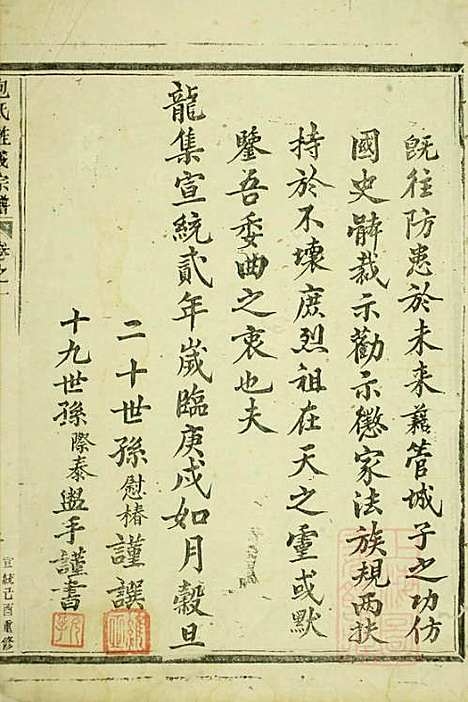 既往防患於未来藉管城子之功仿
國史體裁示勸示懲家法族規兩扶
持於不壞庶烈祖在天之靈或默
鑒吾委曲之衷也夫
龍集宣統貳年歲臨庚戌如月穀旦
二十世孫慰椿謹譔
十九世孫際泰盥手謹書
氏維城宗譜
卷之一
宣統己酉重修